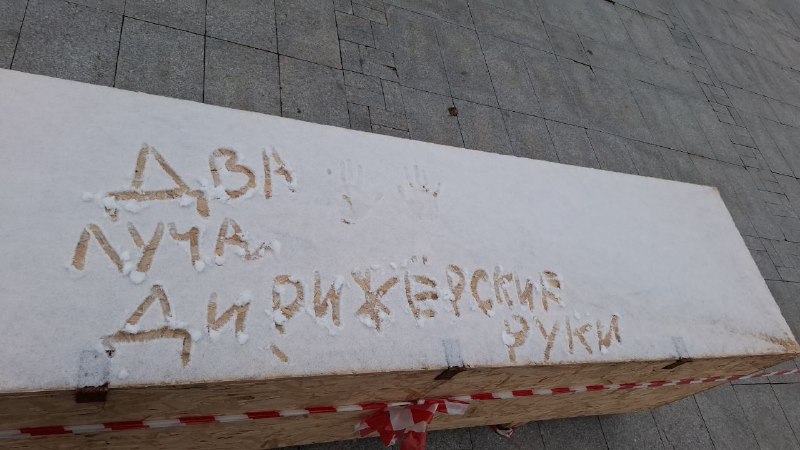 ДВА
ЛУЧА
ДИРИЖЁРСКИЕ
РУКИ